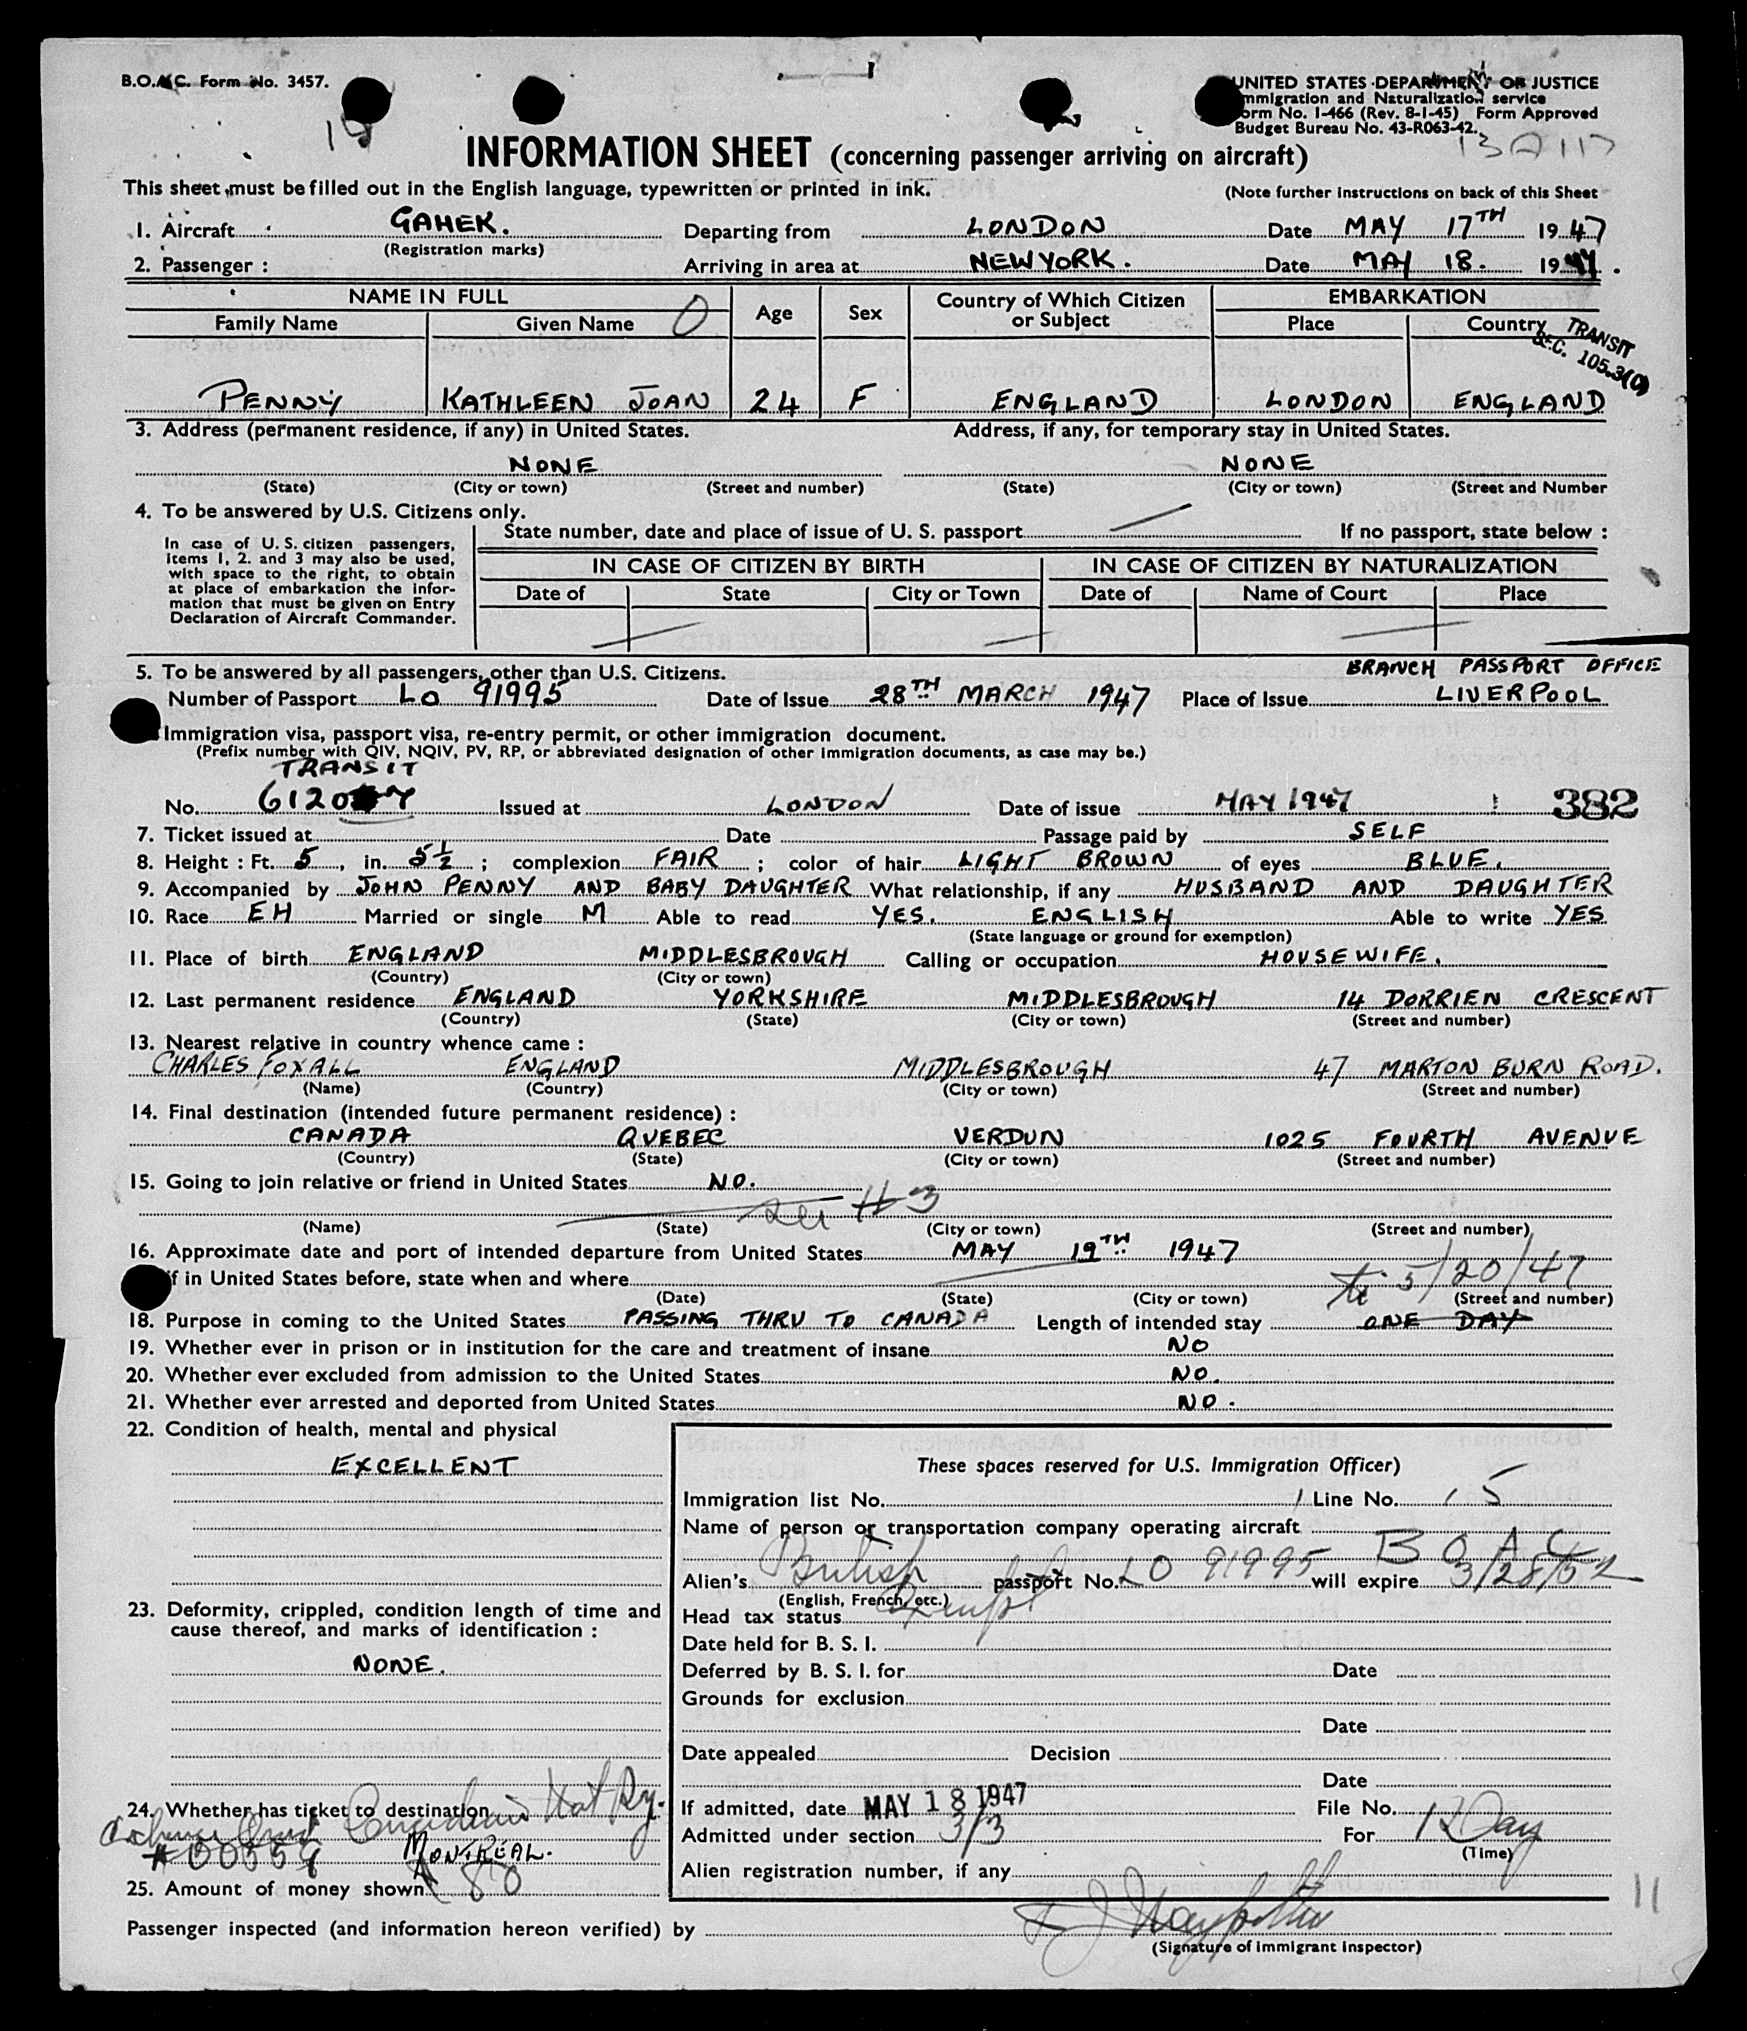 B.O.A.C. Form No. 3457.
UNITED STATES DEPARTMENT OF JUSTICE
Immigration and Naturalization service
Form No. I-466 (Rev. 8-1-45) Form Approved
Budget Bureau No. 43-R063-42.
INFORMATION SHEET (concerning passenger arriving on aircraft)
This sheet must be filled out in the English language, typewritten or printed in ink.
(Note further instructions on back of this Sheet
1. Aircraft GAHEK. Departing from LONDON Date MAY 17TH 1947
(Registration marks)
2. Passenger : Arriving in area at NEW YORK. Date MAY 18. 1947.
NAME IN FULL Age Sex Country of Which Citizen or Subject EMBARKATION
Family Name Given Name Place Country
TRANSIT
SEC. 105.3(C)
PENNY KATHLEEN JOAN 24 F ENGLAND LONDON ENGLAND
3. Address (permanent residence, if any) in United States. Address, if any, for temporary stay in United States.
NONE NONE
(State) (City or town) (Street and number) (State) (City or town) (Street and Number
4. To be answered by U.S. Citizens only.
State number, date and place of issue of U. S. passport If no passport, state below :
In case of U. S. citizen passengers,
items 1, 2. and 3 may also be used,
with space to the right, to obtain
at place of embarkation the infor-
mation that must be given on Entry
Declaration of Aircraft Commander.
IN CASE OF CITIZEN BY BIRTH IN CASE OF CITIZEN BY NATURALIZATION
Date of State City or Town Date of Name of Court Place
5. To be answered by all passengers, other than U.S. Citizens. BRANCH PASSPORT OFFICE
Number of Passport LO 91995 Date of Issue 28TH MARCH 1947 Place of Issue LIVERPOOL
Immigration visa, passport visa, re-entry permit, or other immigration document.
(Prefix number with QIV, NQIV, PV, RP, or abbreviated designation of other immigration documents, as case may be.)
TRANSIT
No. Issued at LONDON Date of issue MAY 1947 382
7. Ticket issued at Date Passage paid by SELF
8. Height : Ft. 5, in. 5½ ; complexion FAIR ; color of hair LIGHT BROWN of eyes BLUE.
9. Accompanied by JOHN PENNY AND BABY DAUGHTER What relationship, if any HUSBAND AND DAUGHTER
10. Race EH Married or single M Able to read YES. ENGLISH Able to write YES
(State language or ground for exemption)
11. Place of birth ENGLAND MIDDLESBROUGH Calling or occupation HOUSEWIFE.
(Country) (City or town)
12. Last permanent residence ENGLAND YORKSHIRE MIDDLESBROUGH 14 DORRIEN CRESCENT
(Country) (State) (City or town) (Street and number)
13. Nearest relative in country whence came :
CHARLES FOXALL ENGLAND MIDDLESBROUGH 47 MARTON BURN ROAD.
(Name) (Country) (City or town) (Street and number)
14. Final destination (intended future permanent residence) :
CANADA QUEBEC VERDUN 1025 FOURTH AVENUE
(Country) (State) (City or town) (Street and number)
15. Going to join relative or friend in United States NO.
(Name) (State) (City or town) (Street and number)
16. Approximate date and port of intended departure from United States MAY 19TH 1947
If in United States before, state when and where 5/20/47
(Date) (State) (City or town) (Street and number)
18. Purpose in coming to the United States PASSING THRU TO CANADA Length of intended stay ONE DAY
19. Whether ever in prison or in institution for the care and treatment of insane NO
20. Whether ever excluded from admission to the United States NO.
21. Whether ever arrested and deported from United States NO.
22. Condition of health, mental and physical
EXCELLENT
These spaces reserved for U.S. Immigration Officer)
Immigration list No. Line No. 5
Name of person or transportation company operating aircraft
B O A C
Alien's British passport No. LO 91995 will expire 3/28/52
(English, French, etc.)
Head tax status Exempt
23. Deformity, crippled, condition length of time and
cause thereof, and marks of identification :
NONE.
Date held for B. S. I.
Deferred by B. S. I. for Date
Grounds for exclusion
Date
Date appealed Decision
Date
24. Whether has ticket to destination Canadian Nat Ry.
MONTREAL.
25. Amount of money shown 80
If admitted, date MAY 18 1947 File No.
Admitted under section 3/3 For 1 Day
(Time)
Alien registration number, if any
11
Passenger inspected (and information hereon verified) by
(Signature of Immigrant Inspector)